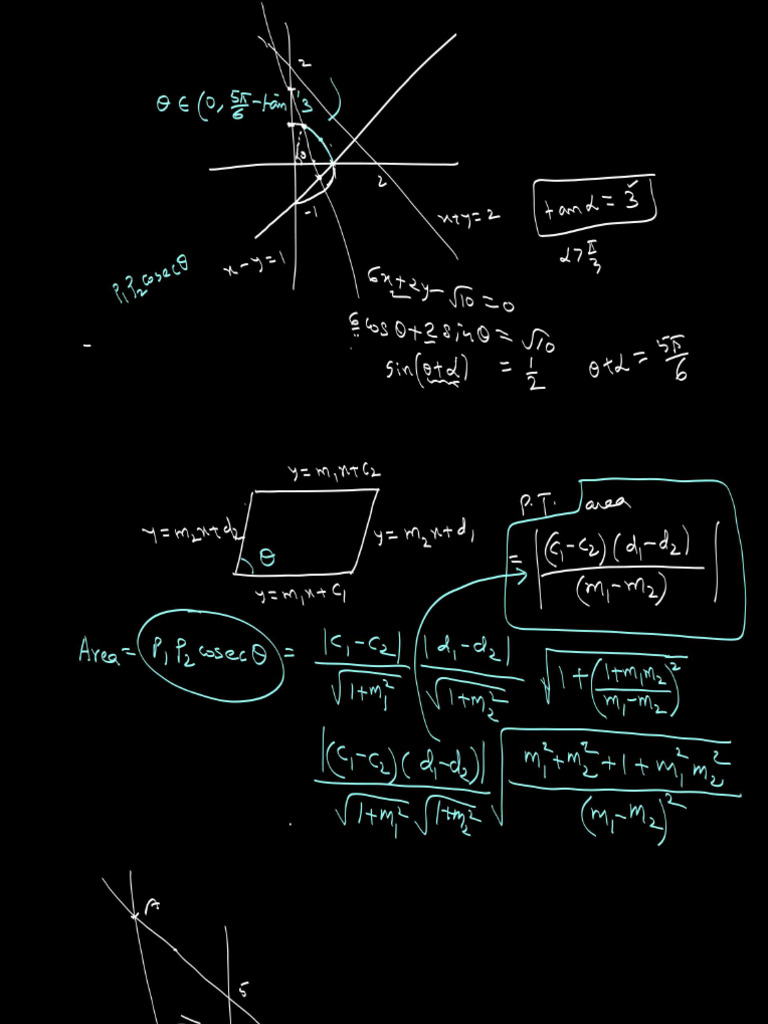 2
θ ∈ (0, 5π/6 - tan⁻¹3)
2
-1
x+y=2
x-y=1
tan α = 3
α > π/3
P₁P₂cosecθ
6x+2y-√10=0
6cosθ+2sinθ=√10
sin(θ+α) = 1/2
θ+α = 5π/6
y=m₁x+c₂
y=m₂x+d₂
y=m₂x+d₁
θ
y=m₁x+c₁
P.T. area
= |(c₁-c₂)(d₁-d₂)/(m₁-m₂)|
Area = P₁P₂cosecθ = |c₁-c₂|/√(1+m₁²) |d₁-d₂|/√(1+m₂²) √(1+((1+m₁m₂)/(m₁-m₂))²)
|(c₁-c₂)(d₁-d₂)|/(√(1+m₁²) √(1+m₂²)) √((m₁²+m₂²+1+m₁²m₂²)/(m₁-m₂)²)
A
5